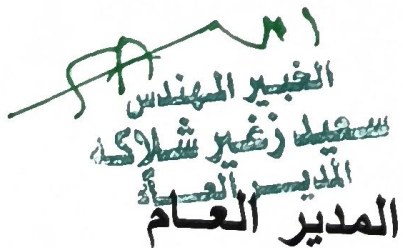 الخبير المهندس
سعيد زغير شلاكه
المدير العام
المدير العام